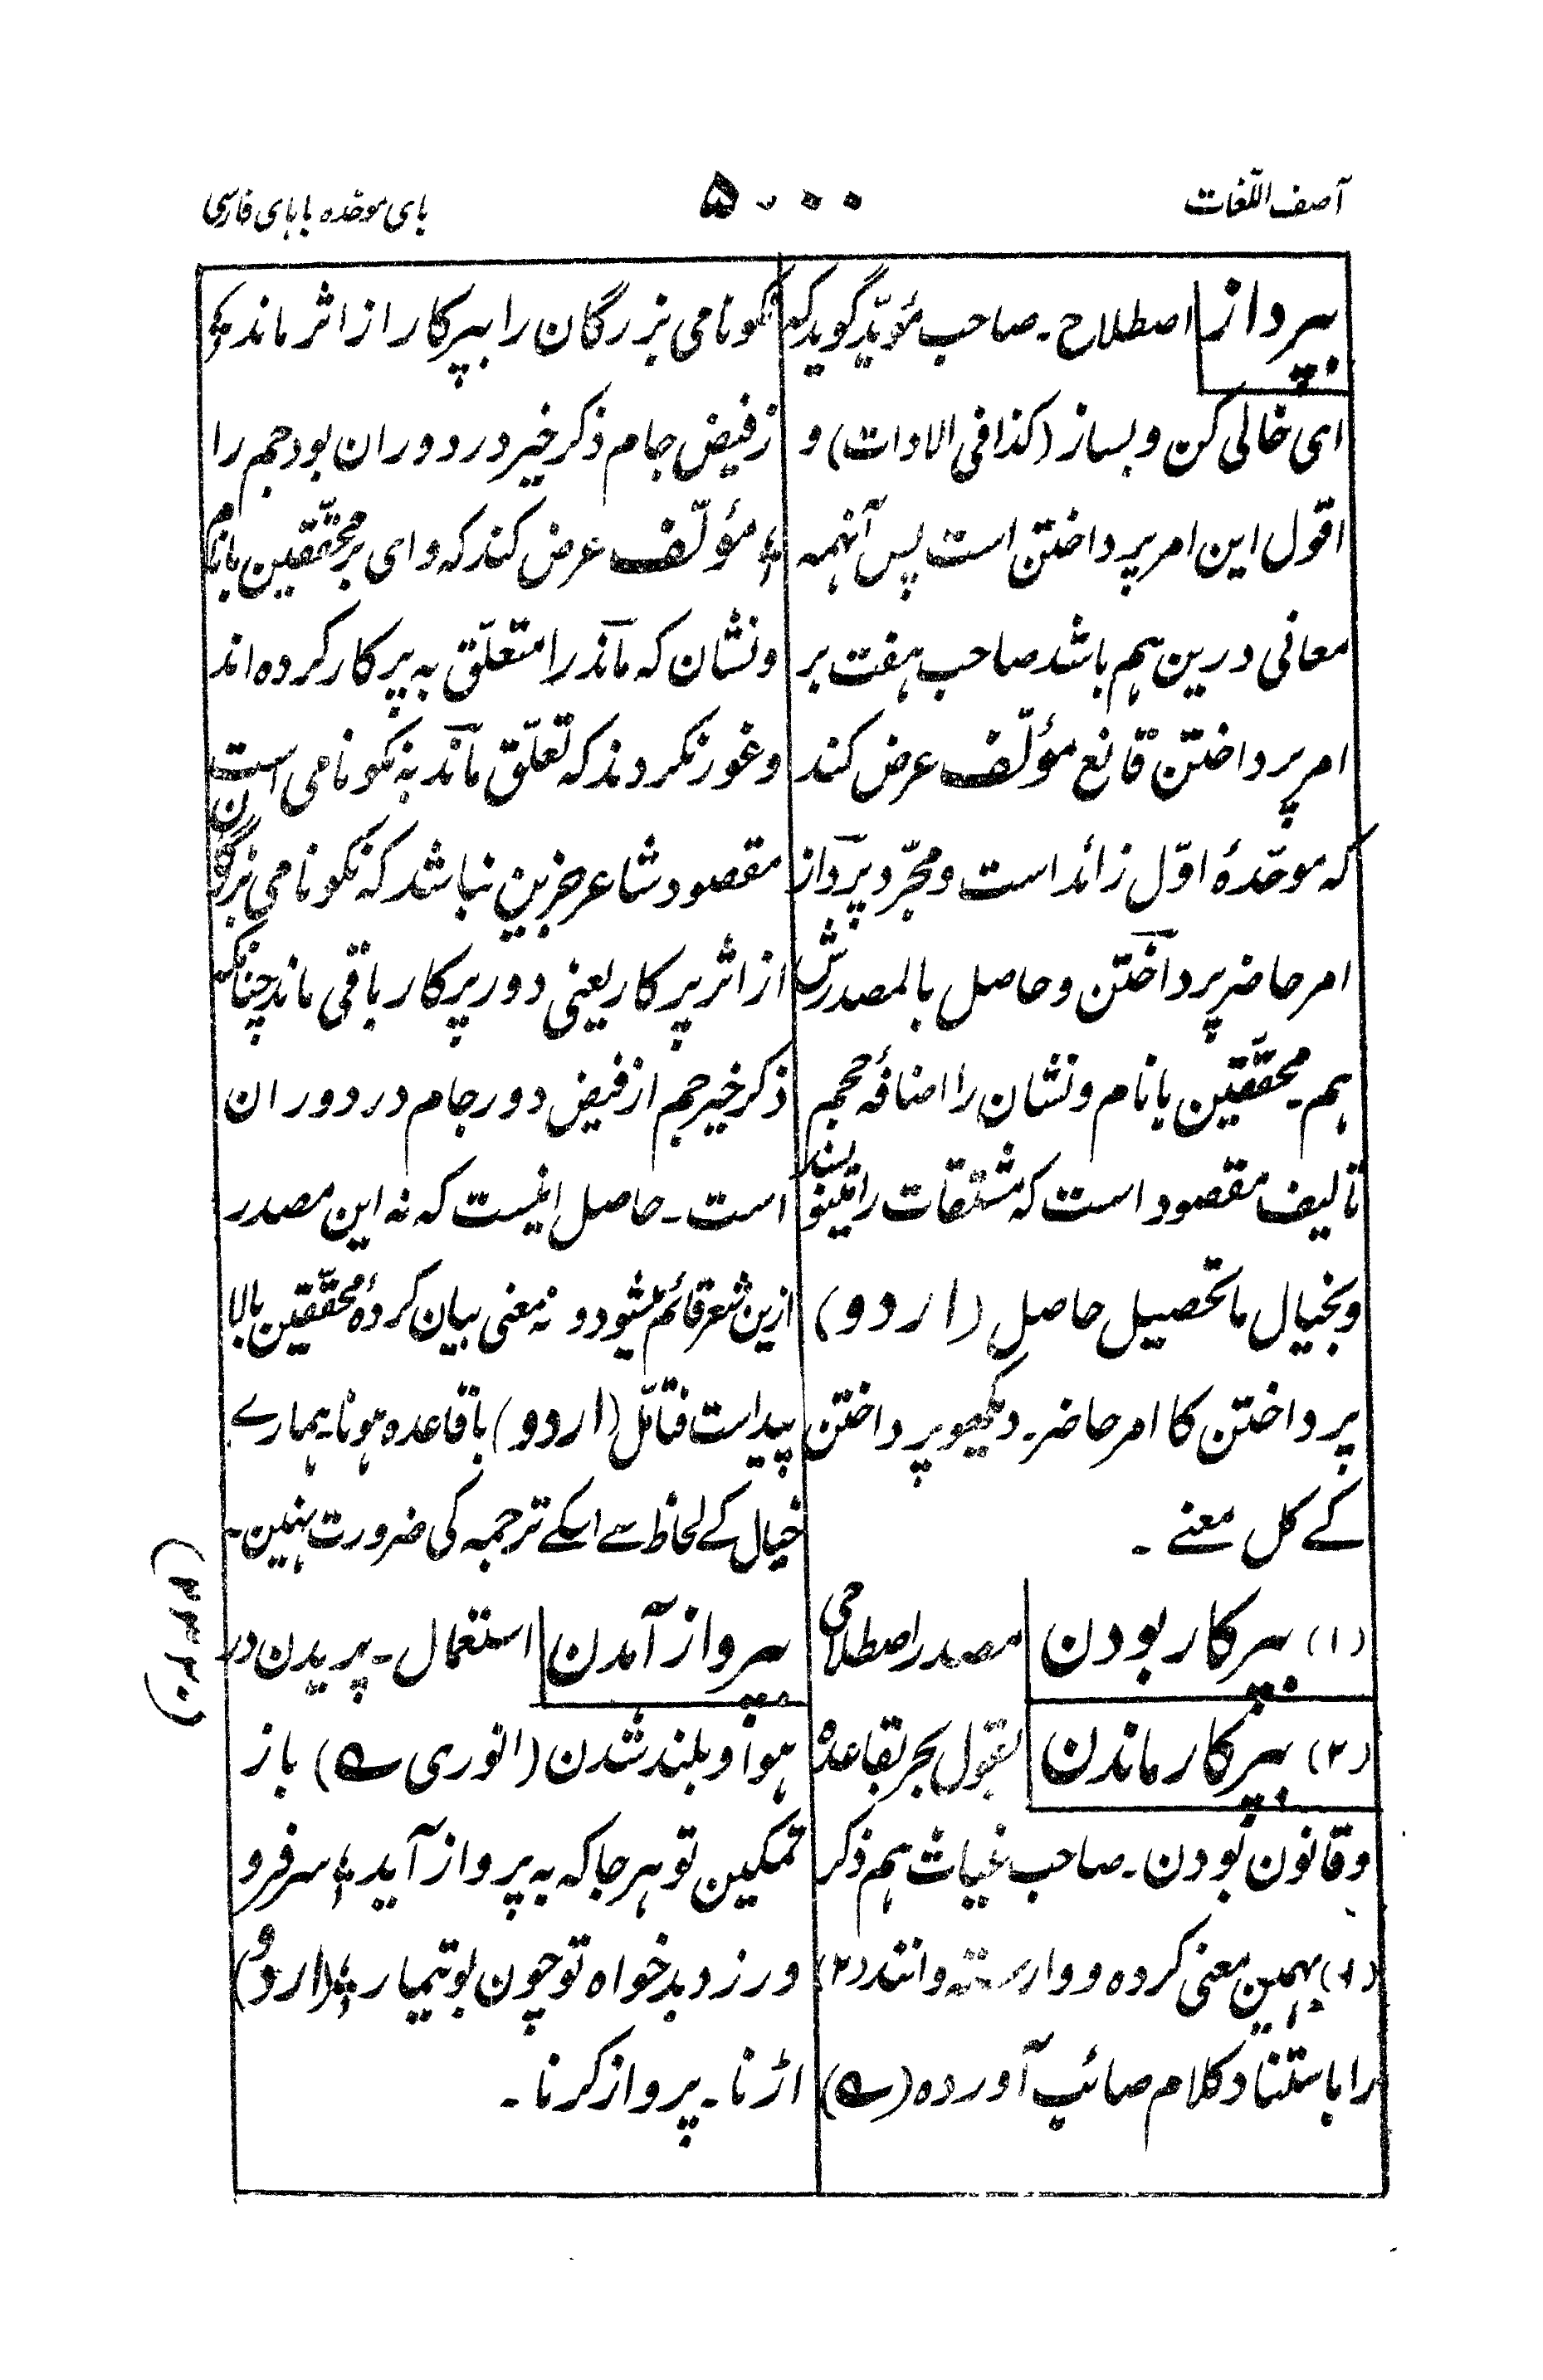 آصف اللّغات
۵۰۰۰
بای موحّده با بای فارسی
بپرداز اصطلاح۔ صاحب مؤیّد گوید که
ای خالی کن و بساز (کذا فی الادات) و
اقول این امر پرداختن است پس آنهمه
معانی درین هم باشد صاحب هفت بر
امر پرداختن قانع مؤلّف عرض کند
که موحّدهٔ اوّل زائد است و مجّرد پرداز
امر حاضر پرداختن و حاصل بالمصدرش
هم۔ محقّقین بانام و نشان را اضافهٔ حجم
تالیف مقصود است که مشتقات را مینویسند
و بخیال ما تحصیل حاصل (اردو)
پرداختن کا امر حاضر۔ دیکھو پرداختن
کے کل معنے ۔
(۱) بپرکار بودن مصدر اصطلاحی
(۲) بپرکار ماندن بقول بحر بقاعده
و قانون بودن۔ صاحب غیاث هم ذکر
(۱) بهمین معنی کرده و وارسته و انند (۲)
را باستناد کلام صائب آورده (ے)
نکونامی بزرگان را بپرکار از اثر ماند ؎
ز فیض جام ذکر خیر در دوران بود جم را
؎ مؤلّف عرض کند که وای بر محقّقین بانام
و نشان که ماند را متعلّق به پرکار کرده اند
و غور نکردند که تعلّق ماند به نکونامی است
مقصود شاعر جزین نباشد که نکونامی بزرگان
از اثر پرکار یعنی دور پرکار باقی ماند چنانکه
ذکر خیر جم از فیض دور جام در دوران
است۔ حاصل اینست که نه این مصدر
ازین شعر قائم میشود و نه معنی بیان کردهٔ محقّقین بالا
پیداست فتامّل (اردو) باقاعده ہونا۔ ہمارے
خیال کے لحاظ سے اسکے ترجمہ کی ضرورت نہین۔
بپرواز آمدن استعمال۔ پریدن در
هوا و بلند شدن (انوری ے) باز
تمکین تو هرجا که به پرواز آید ؎ سر فرو
ورزد بدخواه تو چون بوتیمار ؎ (اردو)
اڑنا۔ پرواز کرنا۔